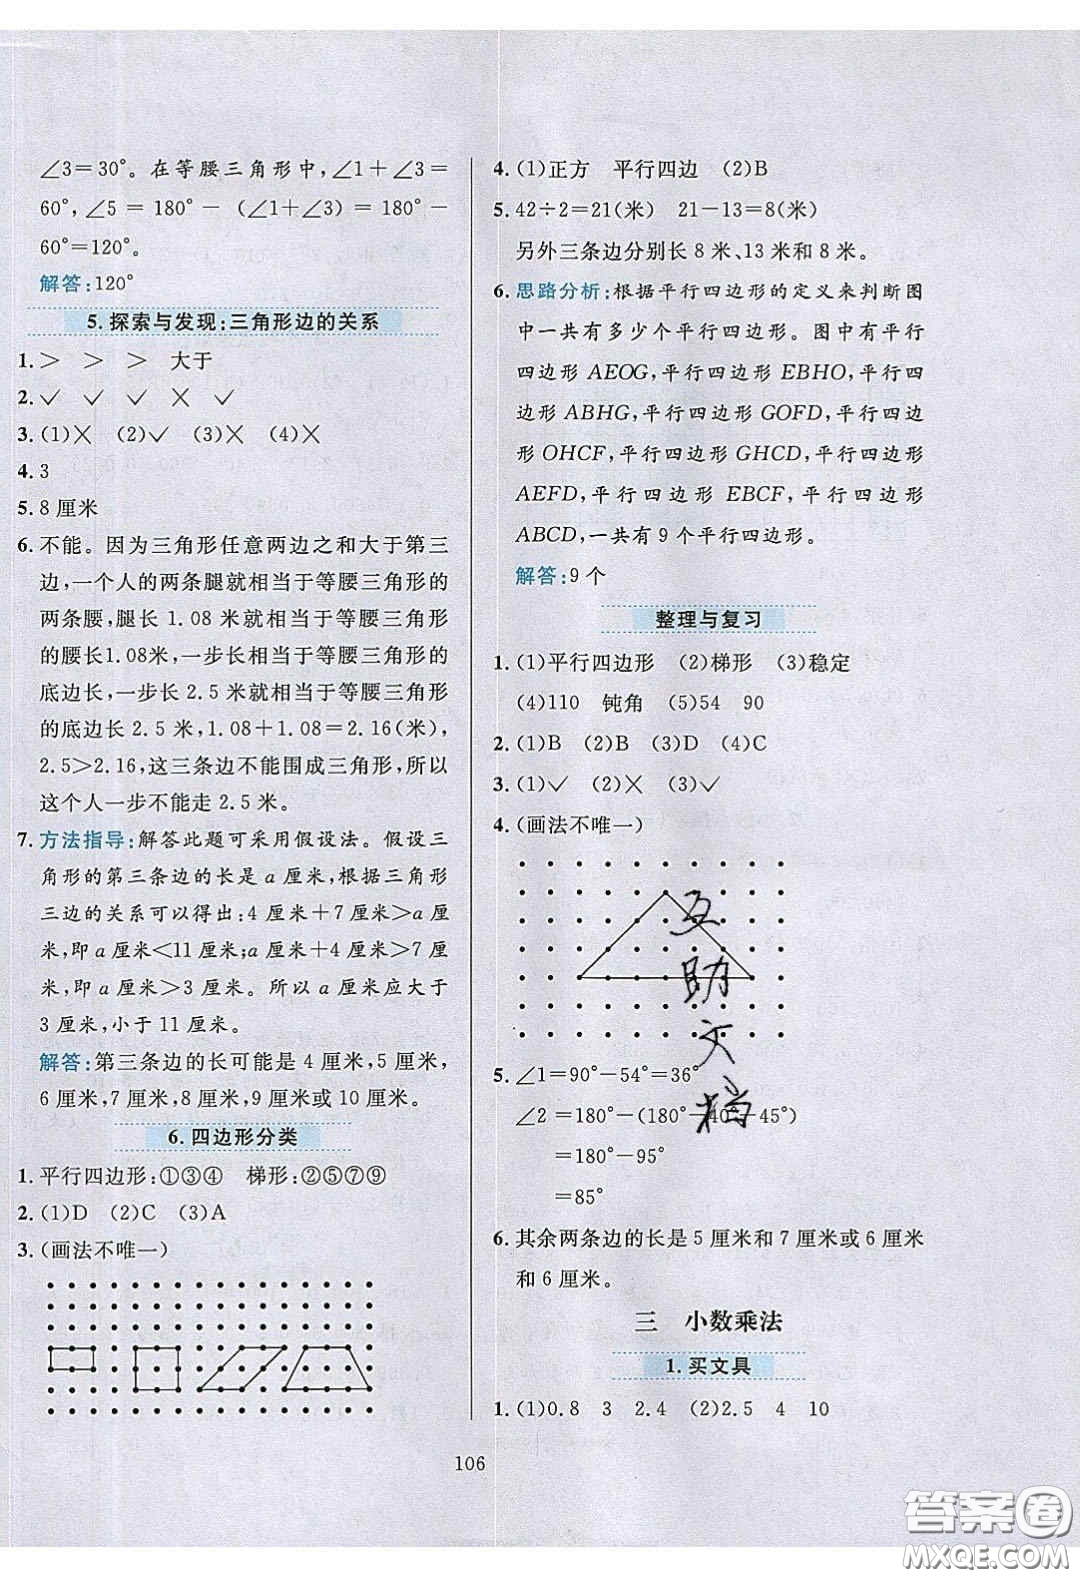 ∠3=30°。在等腰三角形中,∠1+∠3=
60°,∠5=180°-(∠1+∠3)=180°-
60°=120°。
解答:120°
5.探索与发现:三角形边的关系
1.> > > 大于
2.✓ ✓ ✓ ✕ ✓
3.(1)✕ (2)✓ (3)✕ (4)✕
4.3
5.8厘米
6.不能。因为三角形任意两边之和大于第三
边,一个人的两条腿就相当于等腰三角形的
两条腰,腿长1.08米就相当于等腰三角形
的腰长1.08米,一步长2.5米就相当于等腰三角形的
底边长,一步长2.5米就相当于等腰三角形
的底边长2.5米,1.08+1.08=2.16(米),
2.5>2.16,这三条边不能围成三角形,所以
这个人一步不能走2.5米。
7.方法指导:解答此题可采用假设法。假设三
角形的第三条边的长是a厘米,根据三角形
三边的关系可以得出:4厘米+7厘米>a厘
米,即a厘米<11厘米;a厘米+4厘米>7厘
米,即a厘米>3厘米。所以a厘米应大于
3厘米,小于11厘米。
解答:第三条边的长可能是4厘米,5厘米,
6厘米,7厘米,8厘米,9厘米或10厘米。
6.四边形分类
1.平行四边形:①③④ 梯形:②⑤⑦⑨
2.(1)D (2)C (3)A
3.(画法不唯一)
4.(1)正方 平行四边 (2)B
5.42÷2=21(米) 21-13=8(米)
另外三条边分别长8米、13米和8米。
6.思路分析:根据平行四边形的定义来判断图
中一共有多少个平行四边形。图中有平行
四边形AEOG,平行四边形EBHO,平行四
边形ABHG,平行四边形GOFD,平行四边
形OHCF,平行四边形GHCD,平行四边形
AEFD,平行四边形EBCF,平行四边形
ABCD,一共有9个平行四边形。
解答:9个
整理与复习
1.(1)平行四边形 (2)梯形 (3)稳定
(4)110 钝角 (5)54 90
2.(1)B (2)B (3)D (4)C
3.(1)✓ (2)✕ (3)✓
4.(画法不唯一)
互
助
文
档
5.∠1=90°-54°=36°
∠2=180°-(180°-40°-45°)
=180°-95°
=85°
6.其余两条边的长是5厘米和7厘米或6厘米
和6厘米。
三 小数乘法
1.买文具
1.(1)0.8 3 2.4 (2)2.5 4 10
106
答案圈
MXQE.COM